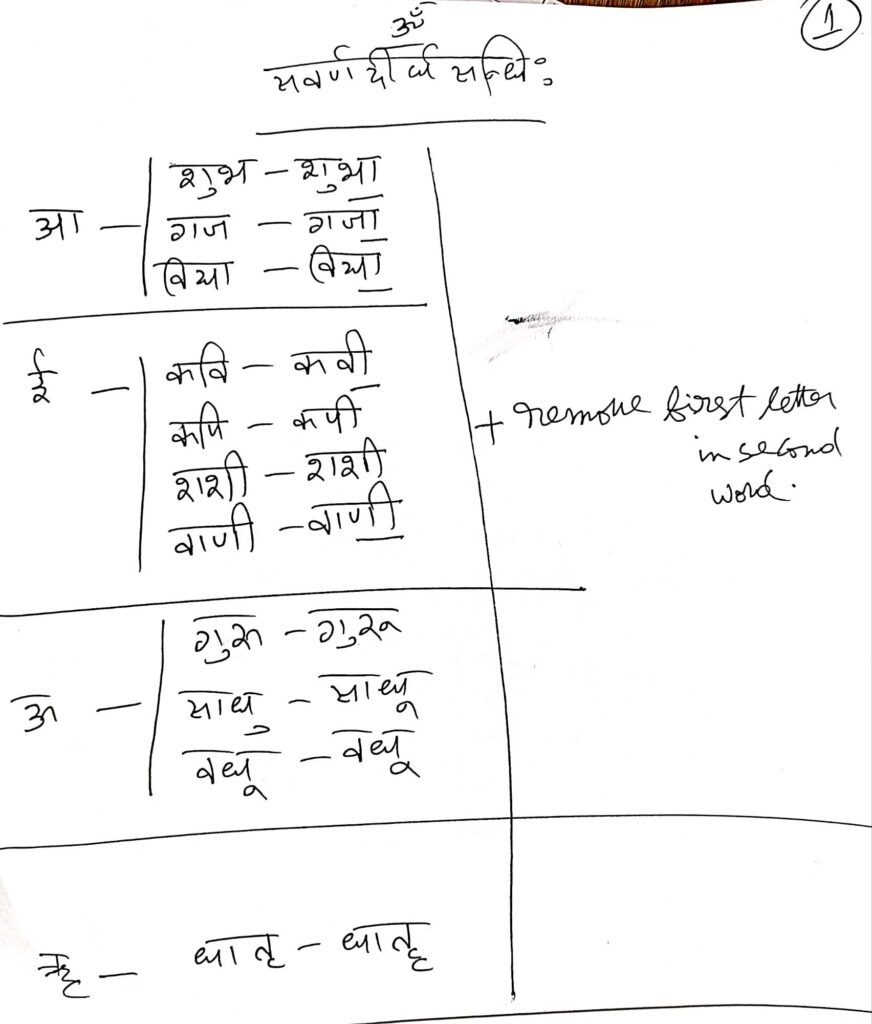 1
ॐ
सवर्ण दीर्घ सन्धिः
आ –
शुभ – शुभा
गज – गजा
विद्या – विद्या
ई –
कवि – कवी
कपि – कपी
शशी – शशी
वाणी – वाणी
+ remove first letter
in second
word.
ऊ –
गुरु – गुरू
साधु – साधू
वधू – वधू
ॠ – धातृ – धातॄ